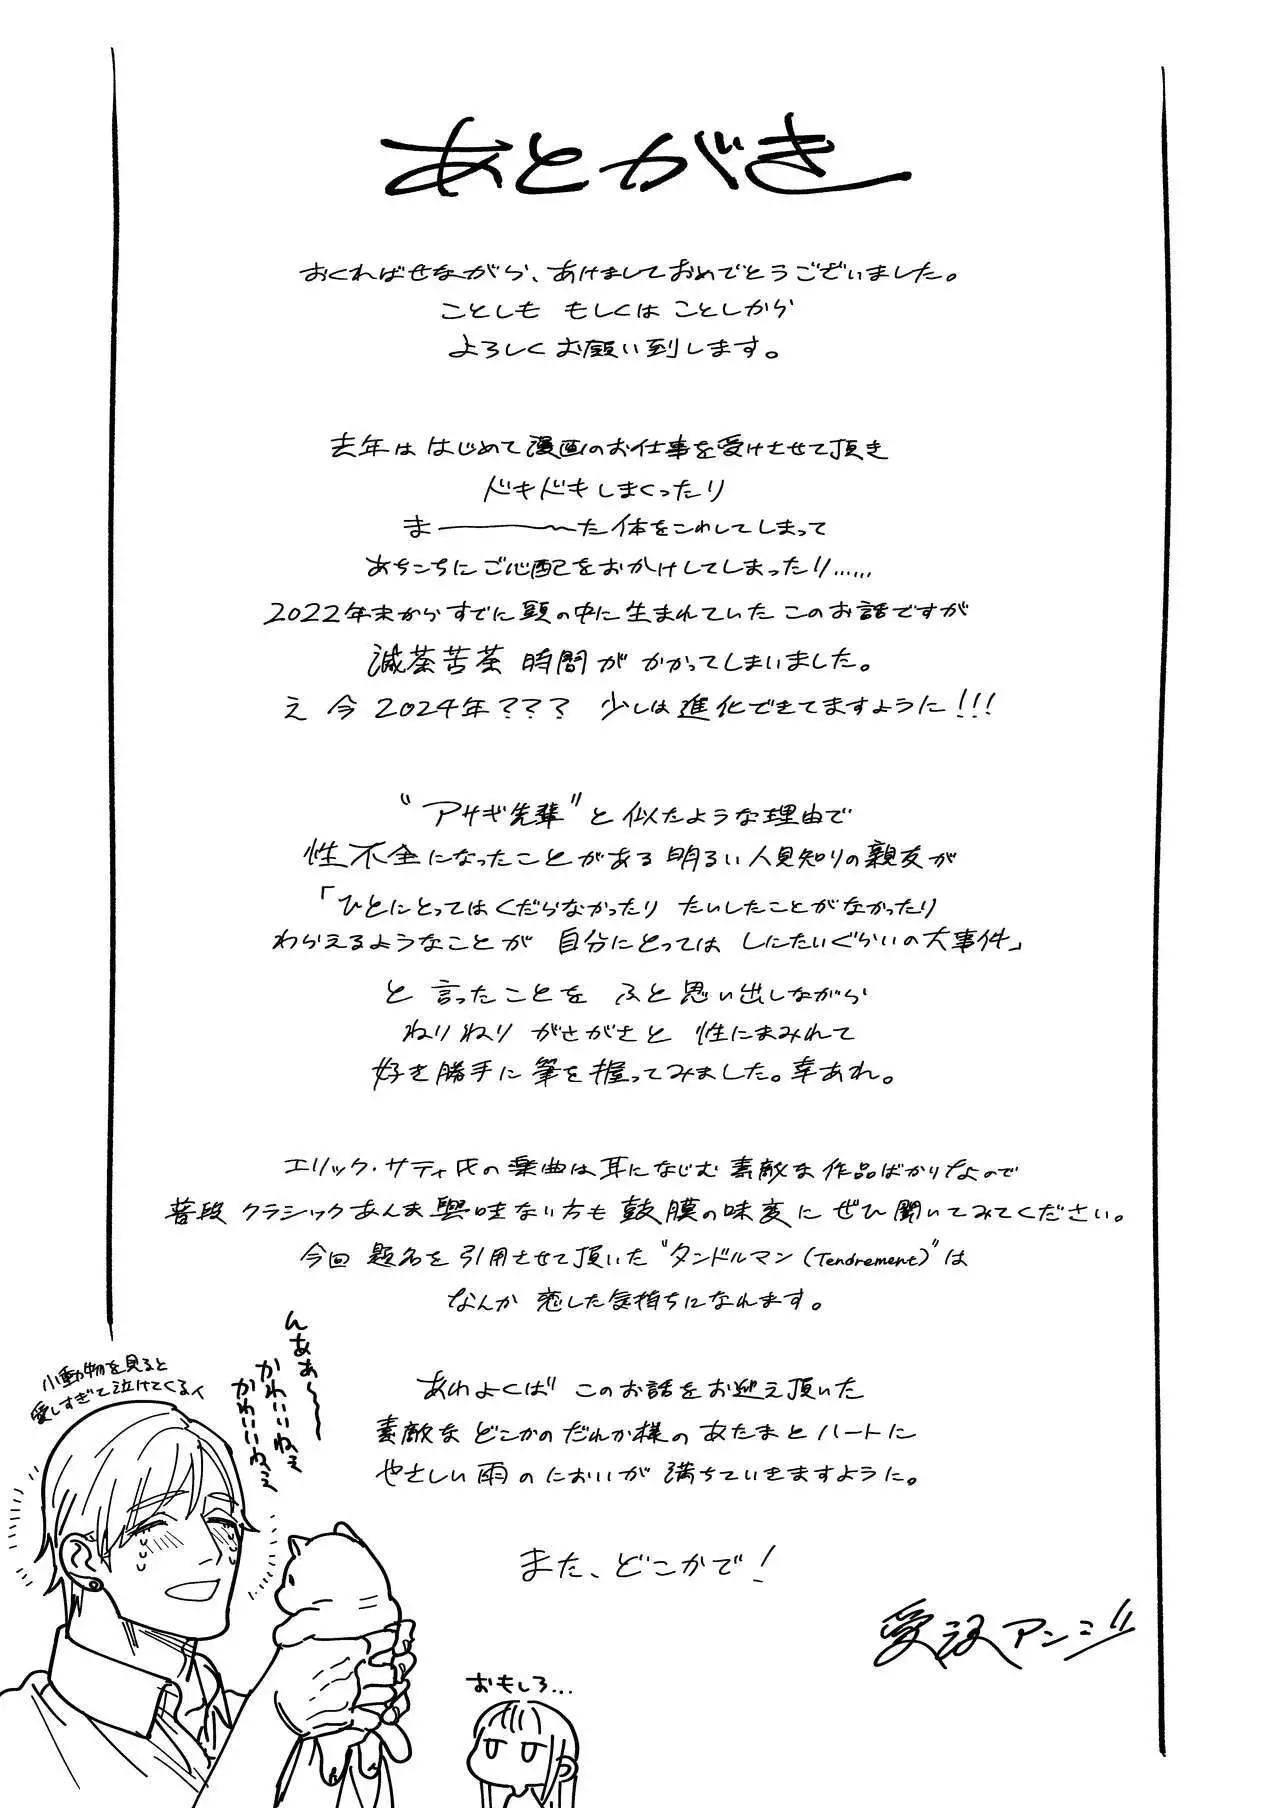 あとがき
おくればせながら、あけましておめでとうございました。
ことしも もしくは ことしから
よろしく お願い致します。
去年は はじめて漫画のお仕事を受けさせて頂き
ドキドキしまくったり
ま────〜た体をこわしてしまって
あちこちに ご心配をおかけしてしまったり……
2022年末からすでに頭の中に生まれていた このお話ですが
滅茶苦茶 時間が かかってしまいました。
え 今 2024年??? 少しは進化できてますように!!!
“アサギ先輩”と 似たような理由で
性不全になったことがある 明るい人見知りの親友が
「ひとにとっては くだらなかったり たいしたことがなかったり
わらえるようなことが 自分にとっては しにたいぐらいの大事件」
と 言ったことを ふと思い出しながら
ねりねり がさがさと 性にまみれて
好き勝手に筆を握ってみました。幸あれ。
エリック・サティ氏の楽曲は耳になじむ 素敵な作品ばかりなので
普段 クラシックあんま興味ない方も 鼓膜の味変に ぜひ聞いてみてください。
今回 題名を 引用させて頂いた “タンドルマン(Tendrement)”は
なんか 恋した気持ちになれます。
あわよくば このお話をお迎え頂いた
素敵な どこかのだれか様の あたまとハートに
やさしい雨の においが 満ちていきますように。
また、どこかで!
愛沢アンジ
小動物を見ると
愛しすぎて泣けてくる人
んあぁ〜
かわいいねぇ
かわいいねぇ
おもしろ...